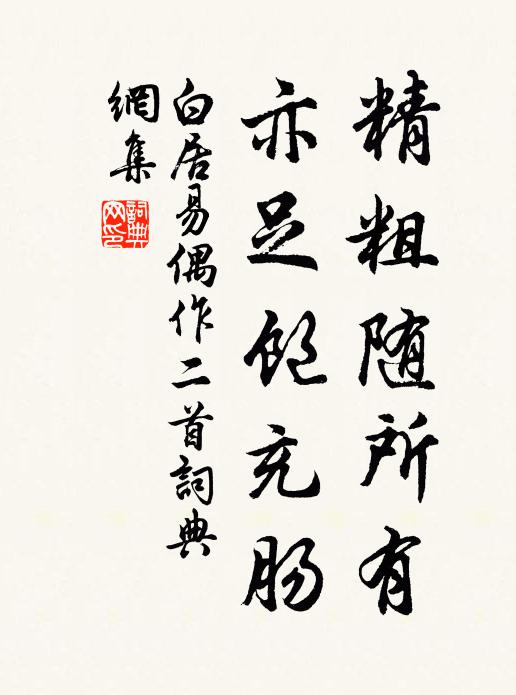 精粗随所有
亦足饱充肠
白居易偶作二首詞典
網集
詞典网印